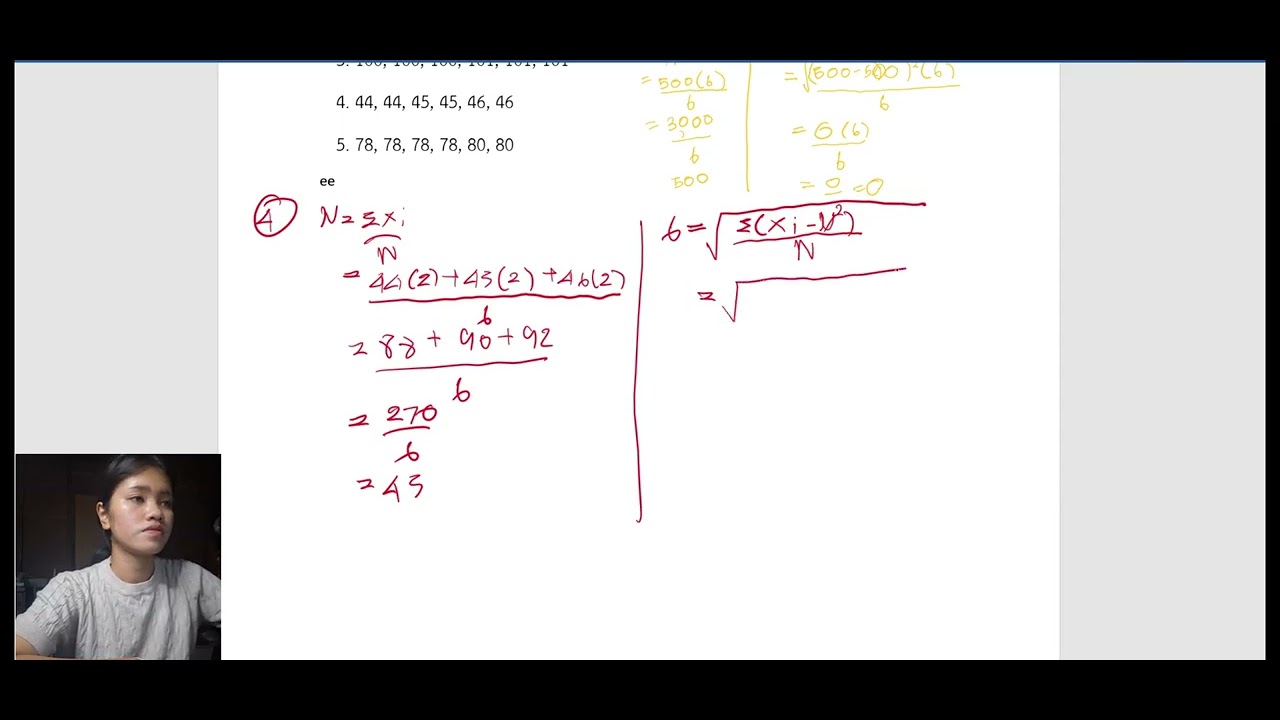 4. 44, 44, 45, 45, 46, 46
5. 78, 78, 78, 78, 80, 80
ee
= 500(6)
6
= 3000
6
500
= √(500-500)²(6)
6
= 0(6)
6
= 0 = 0
4
N = Σxi
N
= 44(2)+45(2)+46(2)
6
= 88 + 90 + 92
6
= 270
6
= 45
6 = √Σ(xi-N²)
N
= √